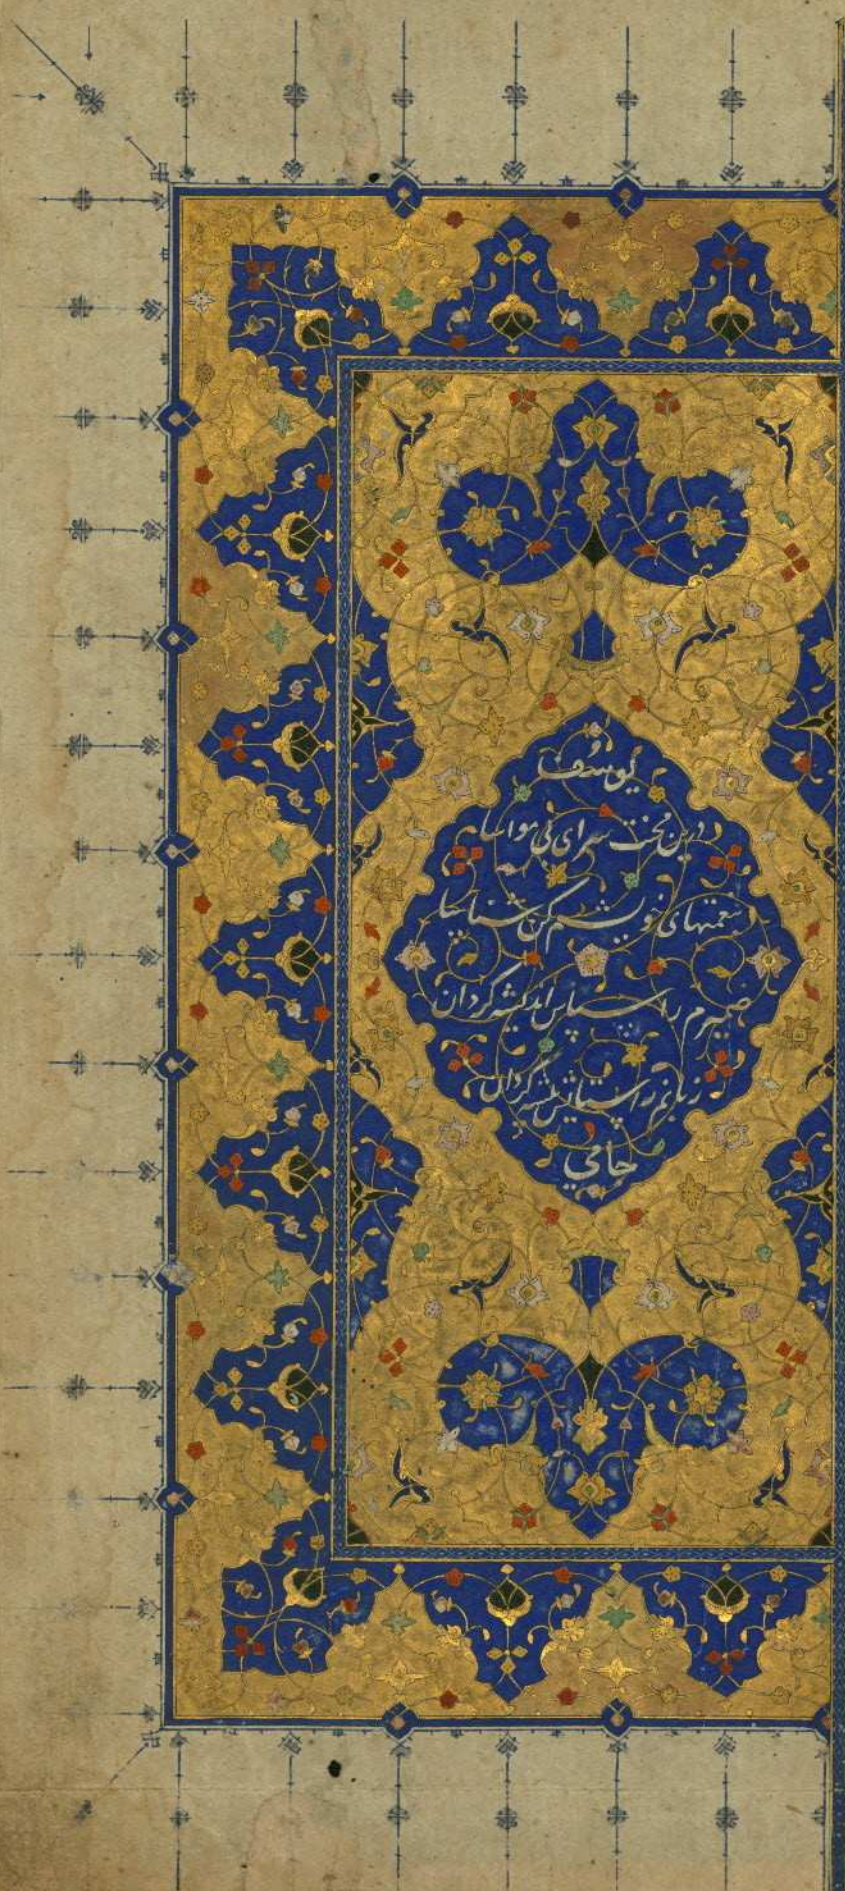 یوسف
درین محنت سرای بی مواسا
بنعمتهای خویشم کن شناسا
ضمیرم را سپاس اندیشه گردان
زبانم را ستایش پیشه گردان
جامی